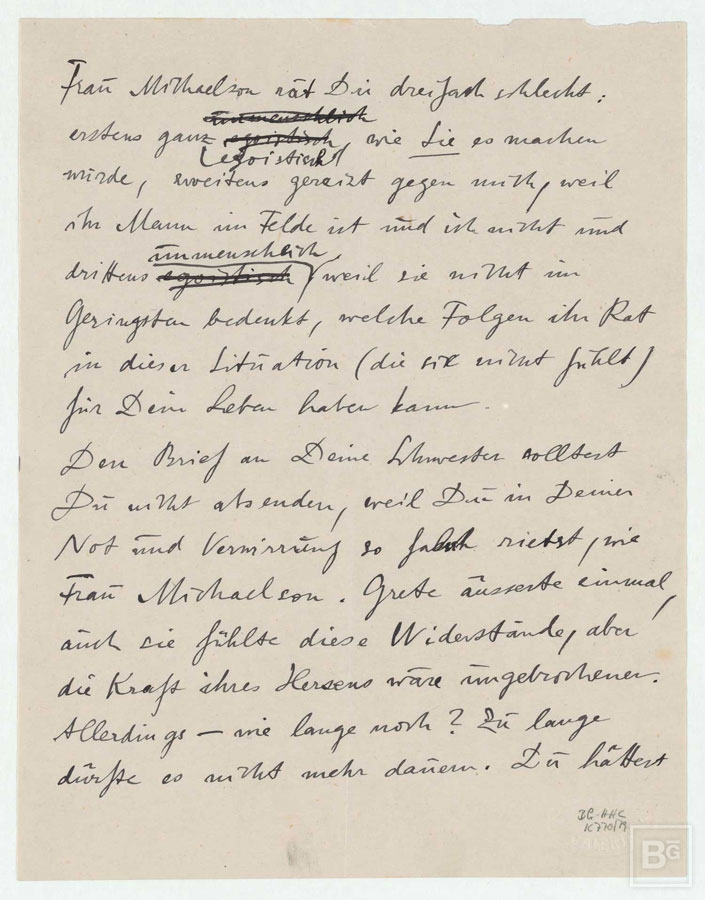 Frau Michaelson rät Dir dreifach schlecht:
unmenschlich
erstens ganz egoistisch, wie Sie es machen
egoistisch
würde, zweitens gereizt gegen mich, weil
ihr Mann im Felde ist und ich nicht und
unmenschlich,
drittens egoistisch, weil sie nicht im
Geringsten bedenkt, welche Folgen ihr Rat
in dieser Situation (die sie nicht fühlt)
für Dein Leben haben kann.
Den Brief an Deine Schwester solltest
Du nicht absenden, weil Du in Deiner
Not und Verwirrung so falsch rietst, wie
Frau Michaelson. Grete äusserte einmal,
auch sie fühlte diese Widerstände, aber
die Kraft ihres Herzens wäre ungebrochener.
Allerdings – wie lange noch? Zu lange
dürfte es nicht mehr dauern. Du hättest
BG-HHC
K770/79
BG